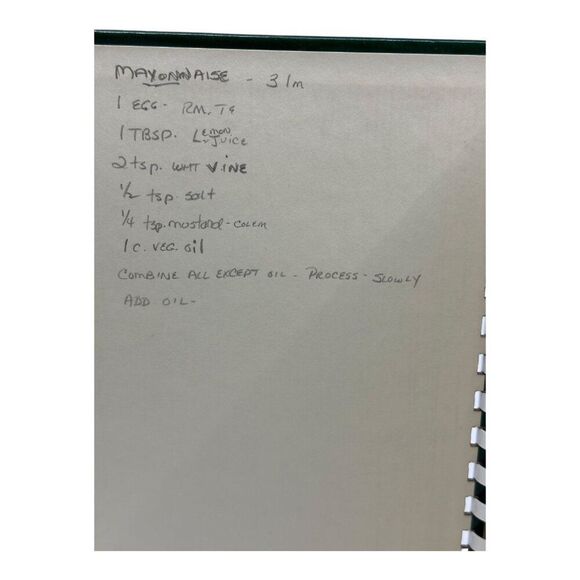 MAYONNAISE - 3 1m
1 EGG - RM. T°
1 TBSP. LEMON JUICE
2 tsp. WHT VINE
1/2 tsp salt
1/4 tsp. mustard - COLEM
1 C. VEG. oil
COMBINE ALL EXCEPT OIL - PROCESS - SLOWLY
ADD OIL -